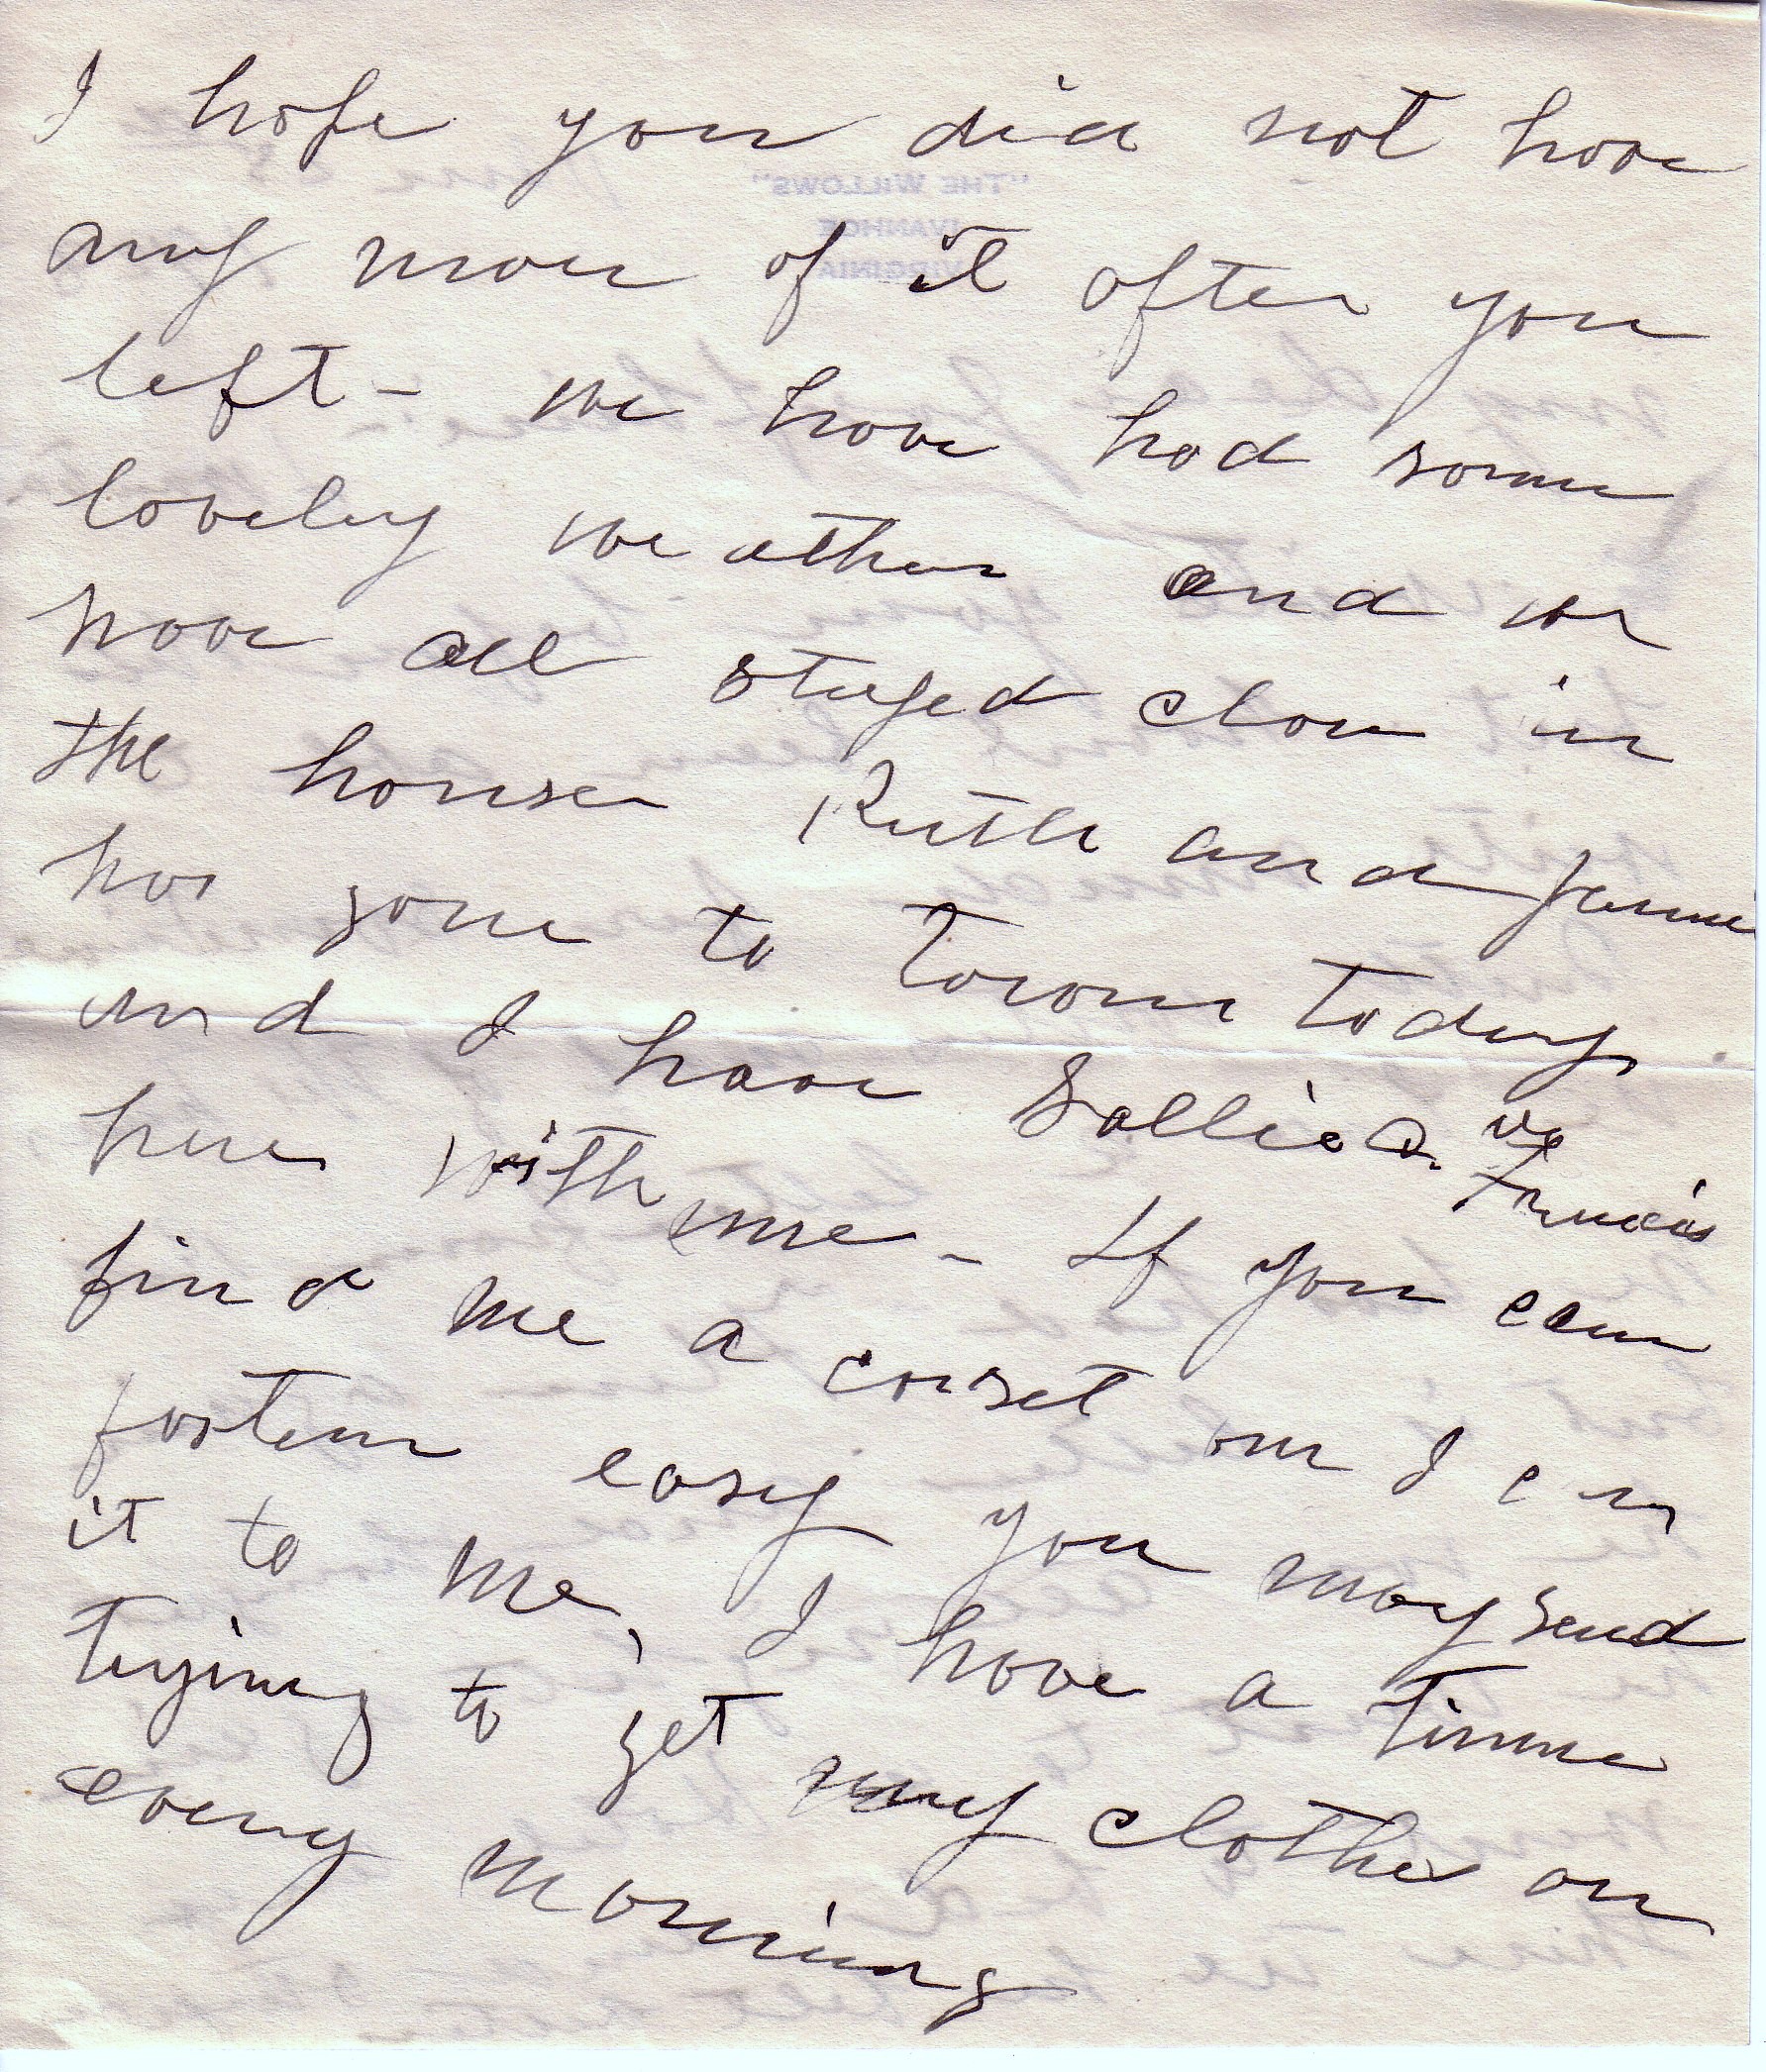 I hope you did not have
any more of it after you
left - we have had some
lovely weather and we
have all stayed close in
the house Ruth and
has gone to town today
and I have Sallie Q. &
Francis
here with me - If you can
find me a corset one I can
fasten easy you may send
it to me, I have a time
trying to get my clothes on
every morning
"THE WILLOWS"
IVANHOE
VIRGINIA